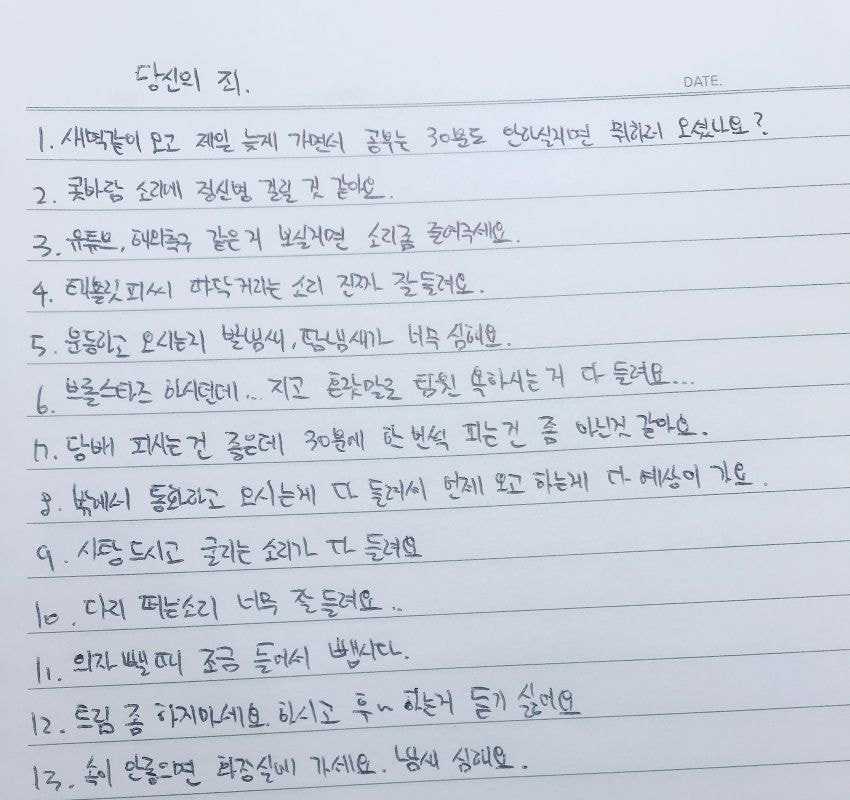 당신의 죄.
DATE.
1. 새벽같이 오고 제일 늦게 가면서 공부는 30분도 안하실거면 뭐하러 오셨나요?
2. 콧바람 소리에 정신병 걸릴 것 같아요.
3. 유튜브, 해외축구 같은거 보실거면 소리좀 줄여주세요.
4. 태블릿피씨 따닥거리는 소리 진짜 잘들려요.
5. 운동하고 오시는지 발냄새, 땀냄새가 너무 심해요.
6. 브롤스타즈 하시던데... 지고 혼잣말로 팀원 욕하시는거 다 들려요...
7. 담배 피시는건 좋은데 30분에 한번씩 피는건 좀 아닌것 같아요.
8. 밖에서 통화하고 오시는게 다 들려서 언제 오고 하는게 다 예상이 가요.
9. 사탕드시고 굴리는 소리가 다 들려요
10. 다리 떠는소리 너무 잘들려요..
11. 의자 뺄때 조금 들어서 뺍시다.
12. 트림 좀 하지마세요. 하시고 후~ 하는거 듣기 싫어요
13. 속이 안좋으면 화장실에 가세요. 냄새 심해요.